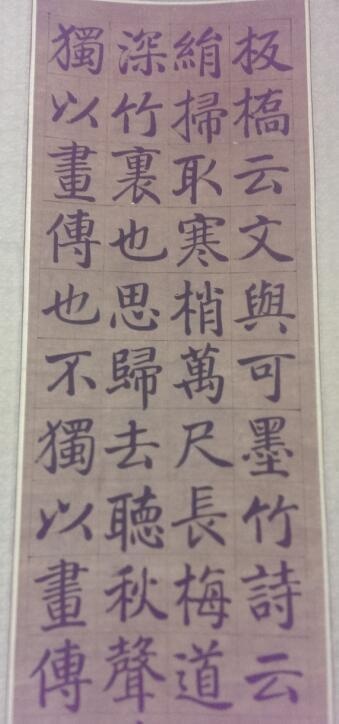 板橋云文與可墨竹詩云
絹掃取寒梢萬尺長梅道
深竹裏也思歸去聽秋聲
獨以畫傳也不獨以畫傳